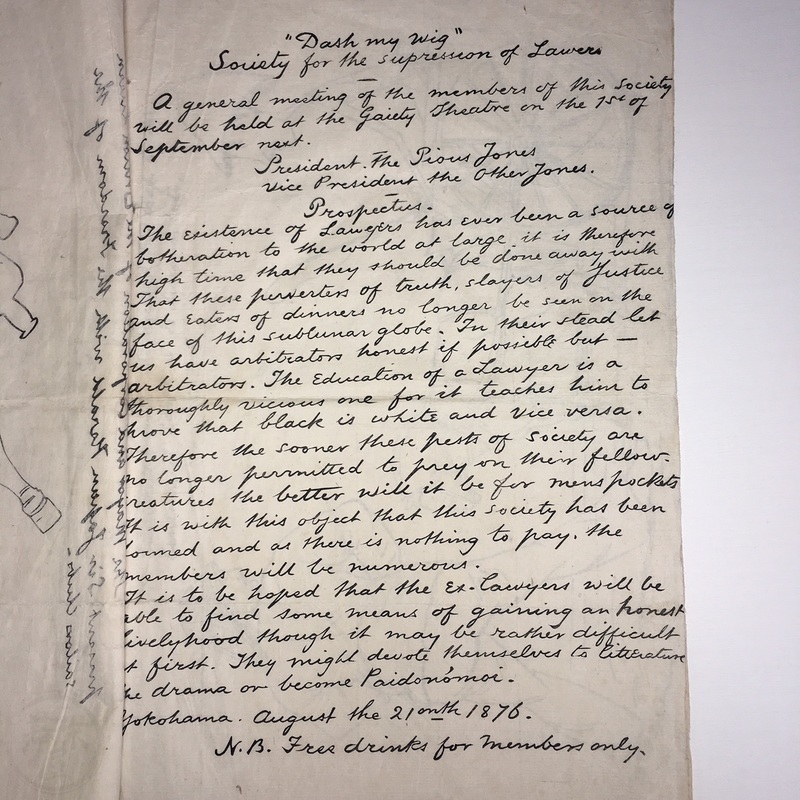 "Dash my Wig"
Society for the supression of Lawers
A general meeting of the members of this Society
will be held at the Gaiety Theatre on the 1st of
September next.
President. The Pious Jones
Vice President the Other Jones.
Prospectus.
The Existence of Lawyers has ever been a source of
botheration to the world at large, it is therefore
high time that they should be done away with
That these perverters of truth, slayers of Justice
and Eaters of dinners no longer be seen on the
face of this sublunar globe. In their stead let
us have arbitrators honest if possible but —
arbitrators. The Education of a Lawyer is a
thoroughly vicious one for it teaches him to
prove that black is white and vice versa.
Therefore the sooner these pests of society are
no longer permitted to prey on their fellow-
creatures the better will it be for mens pockets
It is with this object that this Society has been
formed and as there is nothing to pay, the
members will be numerous.
It is to be hoped that the Ex-Lawyers will be
able to find some means of gaining an honest
livelyhood though it may be rather difficult
at first. They might devote themselves to literature
the drama or become Paidonómoi.
Yokohama. August the 21onth 1876.
N.B. Free drinks for Members only.